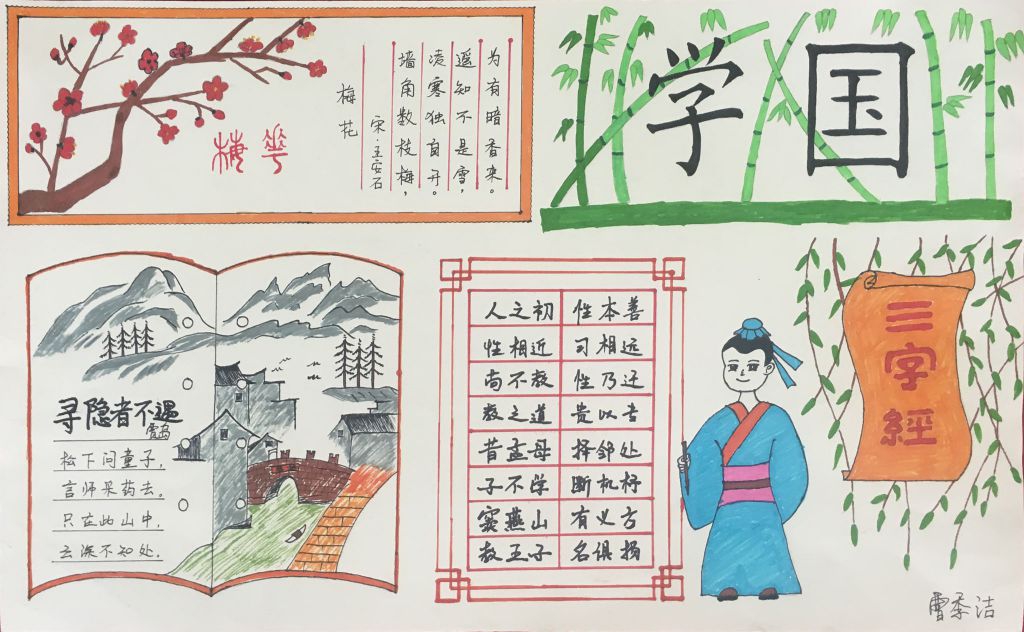 梅花
梅花
宋·王安石
墙角数枝梅，
凌寒独自开。
遥知不是雪，
为有暗香来。
国学
寻隐者不遇
贾岛
松下问童子，
言师采药去。
只在此山中，
云深不知处。
人之初 性本善
性相近 习相远
苟不教 性乃迁
教之道 贵以专
昔孟母 择邻处
子不学 断机杼
窦燕山 有义方
教五子 名俱扬
三字經
曹季洁